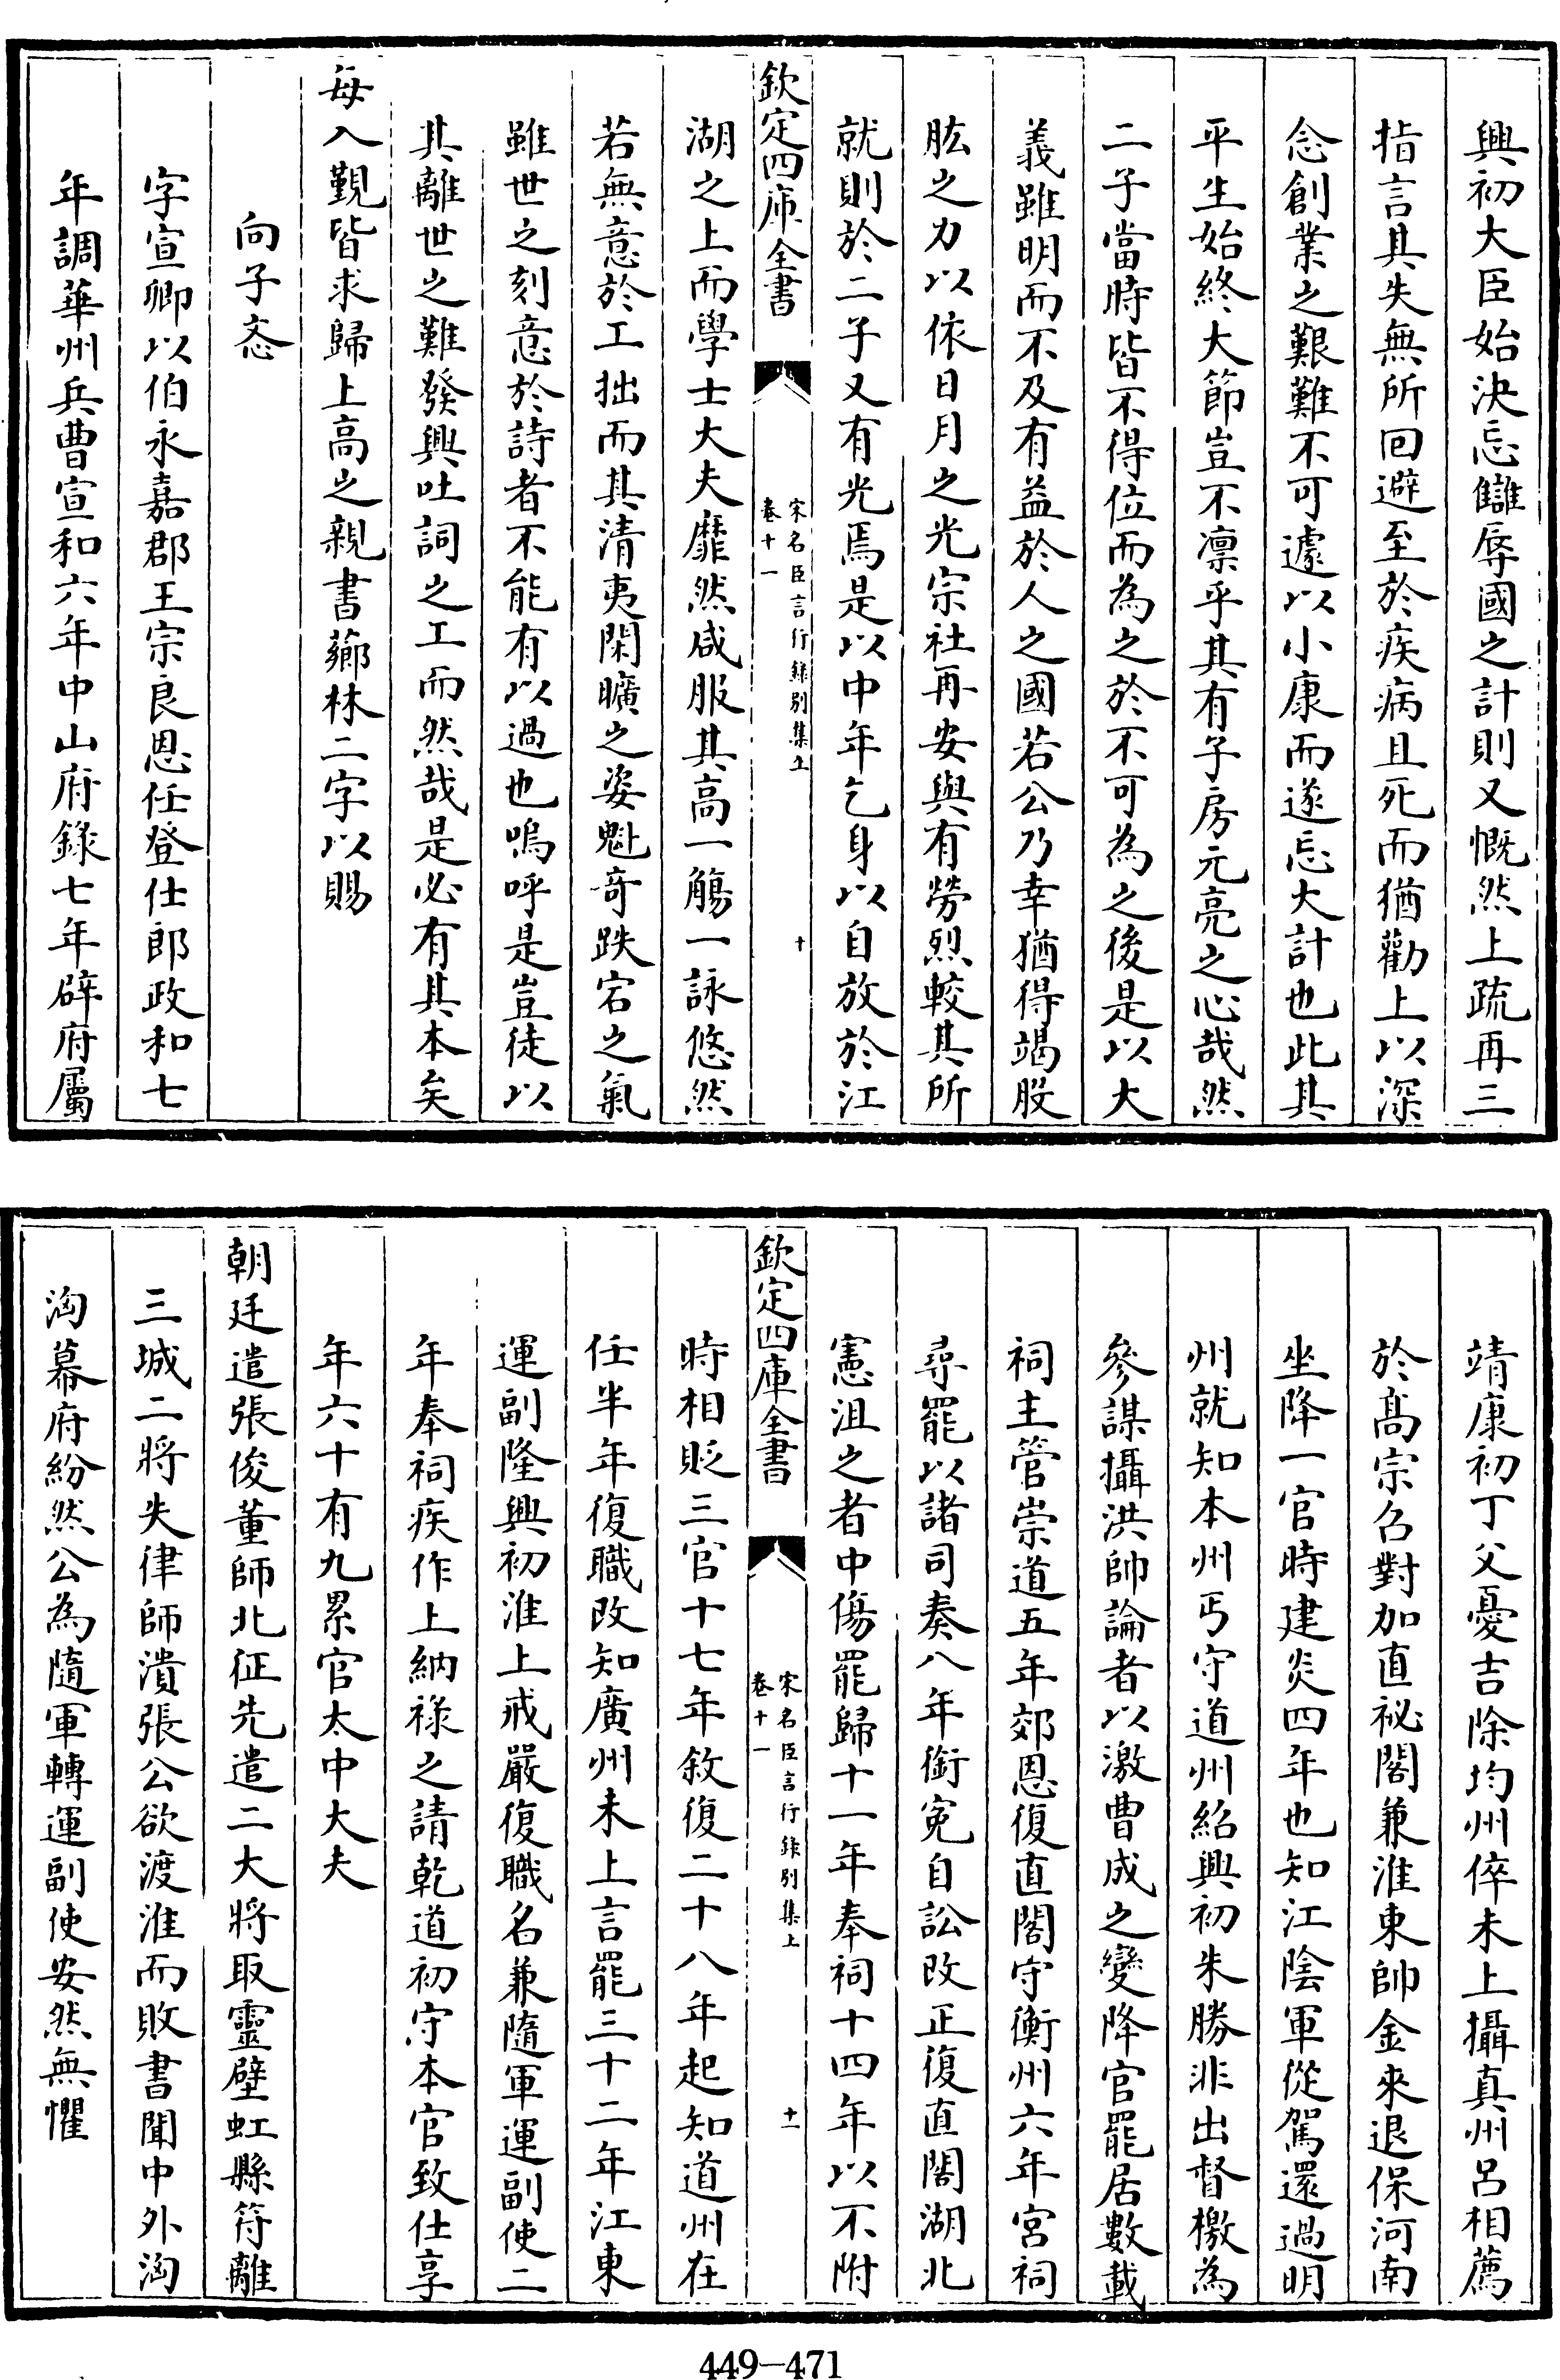 興初大臣始決忘讎辱國之計則又慨然上疏再三
指言其失無所回避至於疾病且死而猶勸上以深
念創業之艱難不可遽以小康而遂忘大計也此其
平生始終大節豈不凛乎其有子房元亮之心哉然
二子當時皆不得位而為之於不可為之後是以大
義雖明而不及有益於人之國若公乃幸猶得竭股
肱之力以依日月之光宗社再安與有勞烈較其所
就則於二子又有光焉是以中年乞身以自放於江
欽定四庫全書
宋名臣言行錄別集上
卷十一
十
湖之上而學士大夫靡然咸服其高一觴一詠悠然
若無意於工拙而其清夷閑曠之姿魁奇跌宕之氣
雖世之刻意於詩者不能有以過也嗚呼是豈徒以
其離世之難發興吐詞之工而然哉是必有其本矣
每入覲皆求歸上高之親書薌林二字以賜
向子忞
字宣卿以伯永嘉郡王宗良恩任登仕郎政和七
年調華州兵曹宣和六年中山府錄七年辟府屬
靖康初丁父憂吉除均州倅未上攝真州呂相薦
於髙宗召對加直祕閣兼淮東帥金來退保河南
坐降一官時建炎四年也知江陰軍從駕還過明
州就知本州丐守道州紹興初朱勝非出督檄為
參謀攝洪帥論者以激曹成之變降官罷居數載
祠主管崇道五年郊恩復直閣守衡州六年宮祠
尋罷以諸司奏八年銜寃自訟改正復直閣湖北
憲沮之者中傷罷歸十一年奉祠十四年以不附
欽定四庫全書
宋名臣言行錄別集上
卷十一
十一
時相貶三官十七年敘復二十八年起知道州在
任半年復職改知廣州未上言罷三十二年江東
運副隆興初淮上戒嚴復職名兼隨軍運副使二
年奉祠疾作上納祿之請乾道初守本官致仕享
年六十有九累官太中大夫
朝廷遣張俊董師北征先遣二大將取靈壁虹縣符離
三城二將失律師潰張公欲渡淮而敗書聞中外洶
洶幕府紛然公為隨軍轉運副使安然無懼
449-471